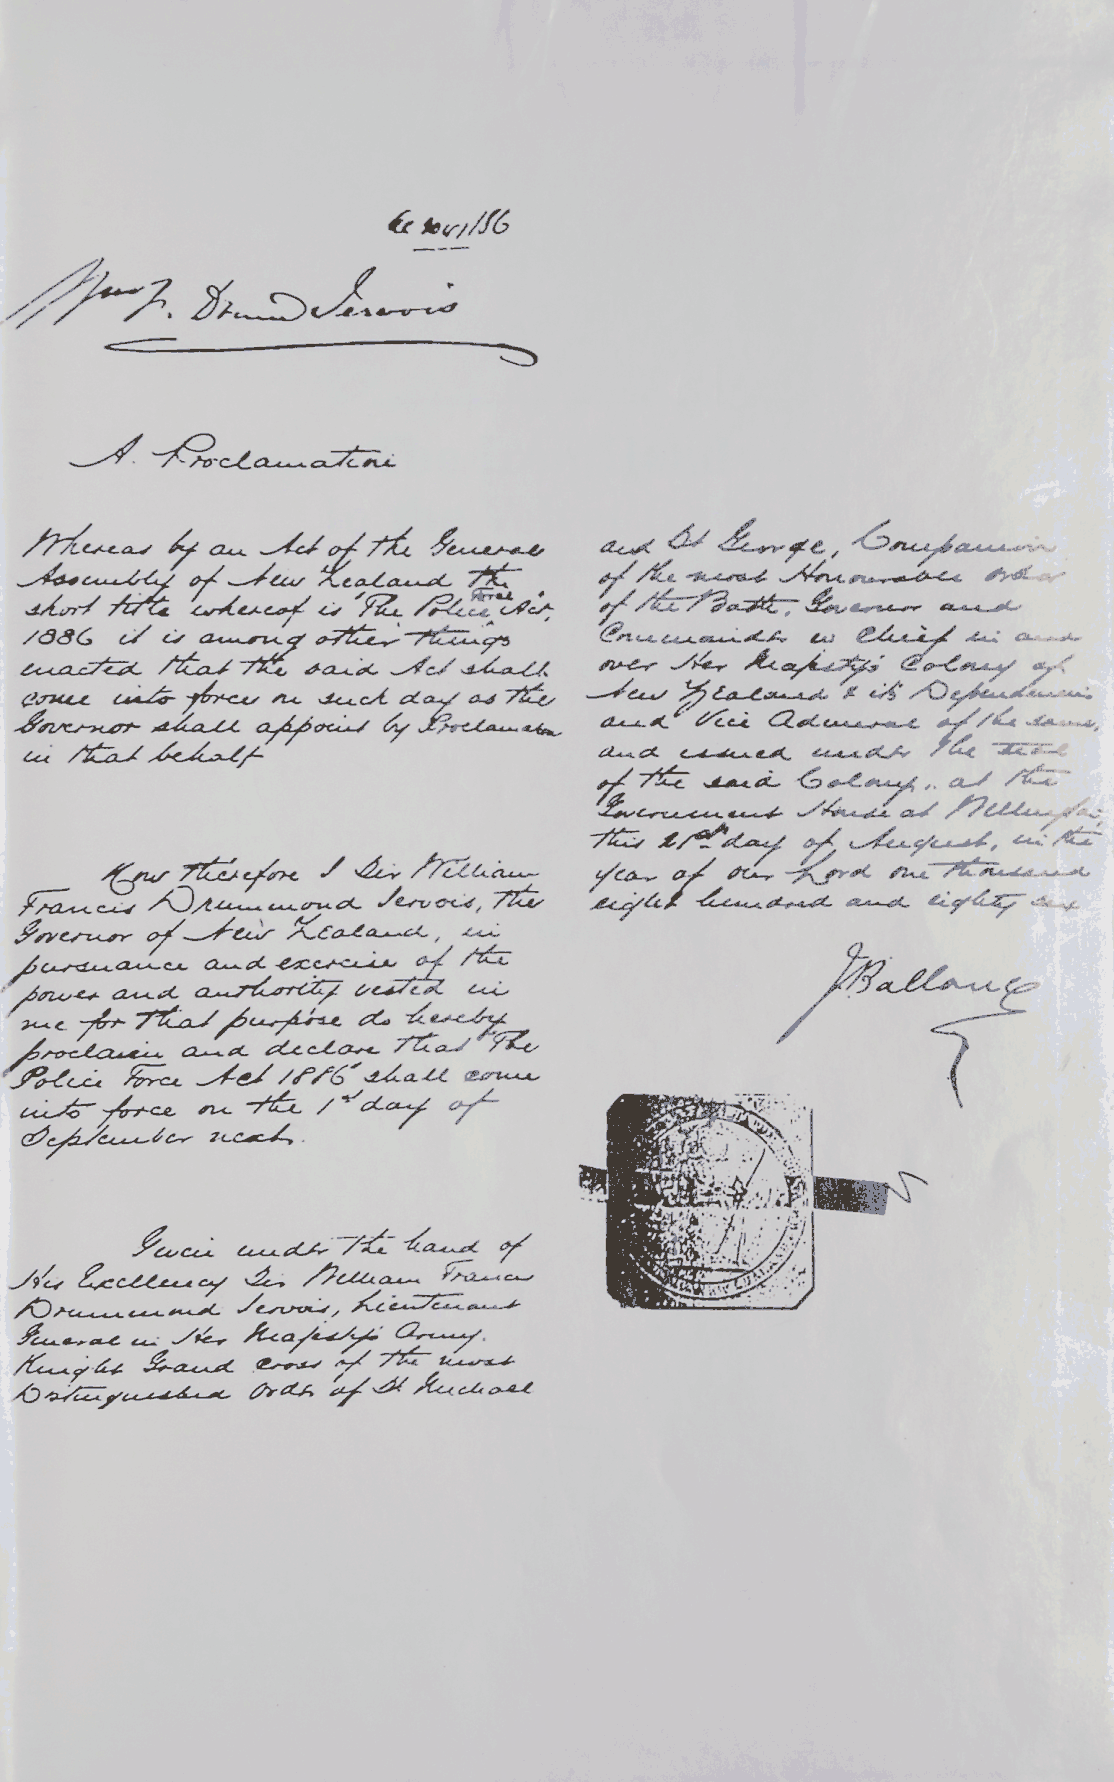 Wm F. Drumd Jervois
A. Proclamation
Whereas by an Act of the General
Assembly of New Zealand the
short title whereof is "The Police Force Act,
1886 it is among other things
enacted that the said Act shall
come into force on such day as the
Governor shall appoint by Proclamation
in that behalf
Now therefore I Sir William
Francis Drummond Jervois, the
Governor of New Zealand, in
pursuance and exercise of the
power and authority vested in
me for that purpose do hereby
proclaim and declare that "The
Police Force Act 1886" shall come
into force on the 1st day of
September next.
Given under the hand of
His Excellency Sir William Francis
Drummond Jervois, Lieutenant
General in Her Majesty's Army.
Knight Grand cross of the most
Distinguished Order of St Michael
and St George, Companion
of the most Honourable order
of the Bath, Governor and
Commander in Chief in and
over Her Majesty's Colony of
New Zealand & its Dependencies
and Vice Admiral of the same,
and issued under the seal
of the said Colony, at the
Government House at Wellington,
this 21st day of August, in the
year of our Lord one thousand
eight hundred and eighty six
J Ballance